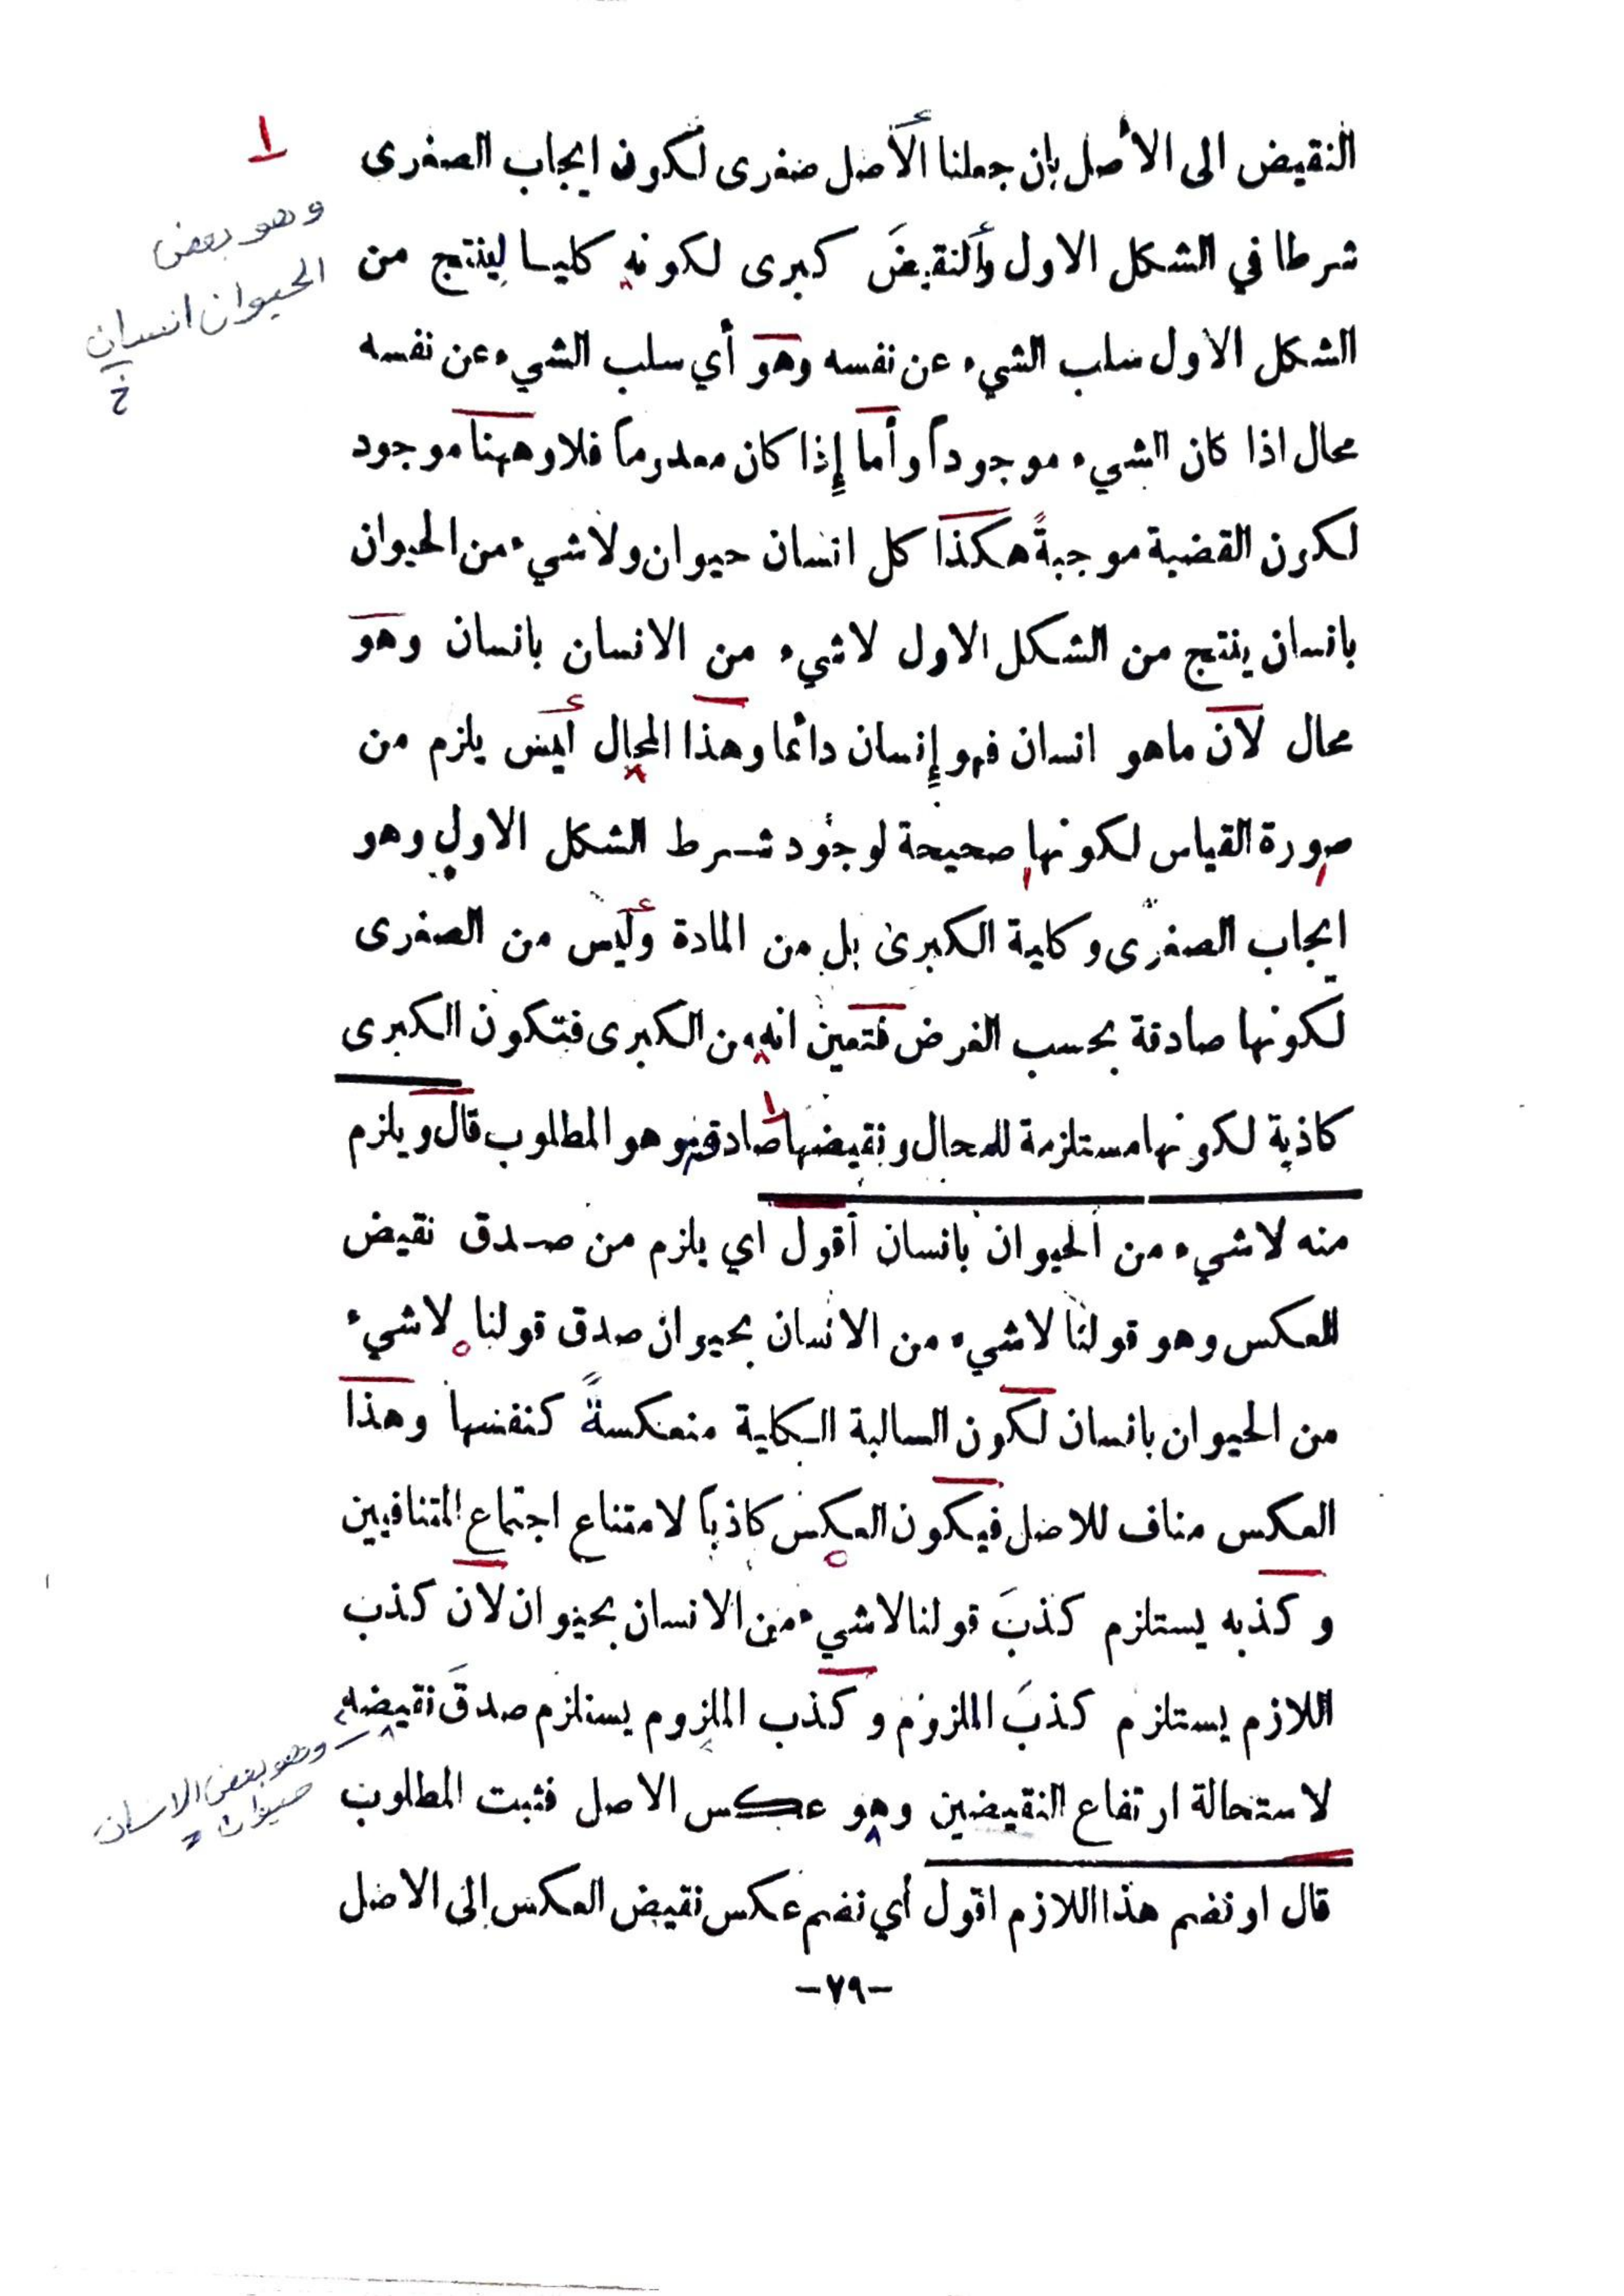 النقيض الى الأصل بان جعلنا الأصل صغرى لكون ايجاب الصغرى
شرطا في الشكل الاول والنقيضَ كبرى لكونه كليا لينتج من
الشكل الاول سلب الشيء عن نفسه وهو أي سلب الشيء عن نفسه
محال اذا كان الشيء موجوداً وأما إِذا كان معدوماً فلا وههنا موجود
لكون القضية موجبةً هكذا كل انسان حيوان ولا شيء من الحيوان
بانسان ينتج من الشكل الاول لا شيء من الانسان بانسان وهو
محال لان ماهو انسان فهو إِنسان دائما وهذا المحال ليس يلزم من
صورة القياس لكونها صحيحة لوجود شرط الشكل الاول وهو
ايجاب الصغرى وكلية الكبرى بل من المادة وليس من الصغرى
لكونها صادقة بحسب الفرض فتعين انه من الكبرى فتكون الكبرى
كاذبة لكونها مستلزمة للمحال ونقيضها صادق وهو المطلوب قال ويلزم
منه لا شيء من الحيوان بانسان أقول اي يلزم من صدق نقيض
العكس وهو قولنا لا شيء من الانسان بحيوان صدق قولنا لا شيء
من الحيوان بانسان لكون السالبة الكلية منعكسةً كنفسها وهذا
العكس مناف للاصل فيكون العكس كاذباً لامتناع اجتماع المتنافيين
وكذبه يستلزم كذبَ قولنا لا شيء من الانسان بحيوان لان كذب
اللازم يستلزم كذبَ الملزوم وكذب الملزوم يستلزم صدقَ نقيضه
لاستحالة ارتفاع النقيضين وهو عكس الاصل فثبت المطلوب
قال او نضم هذا اللازم اقول أي نضم عكس نقيض العكس إلى الاصل
-٧٩-
١
وهو بعض
الحيوان انسان
وهو بعض الانسان
حيوان